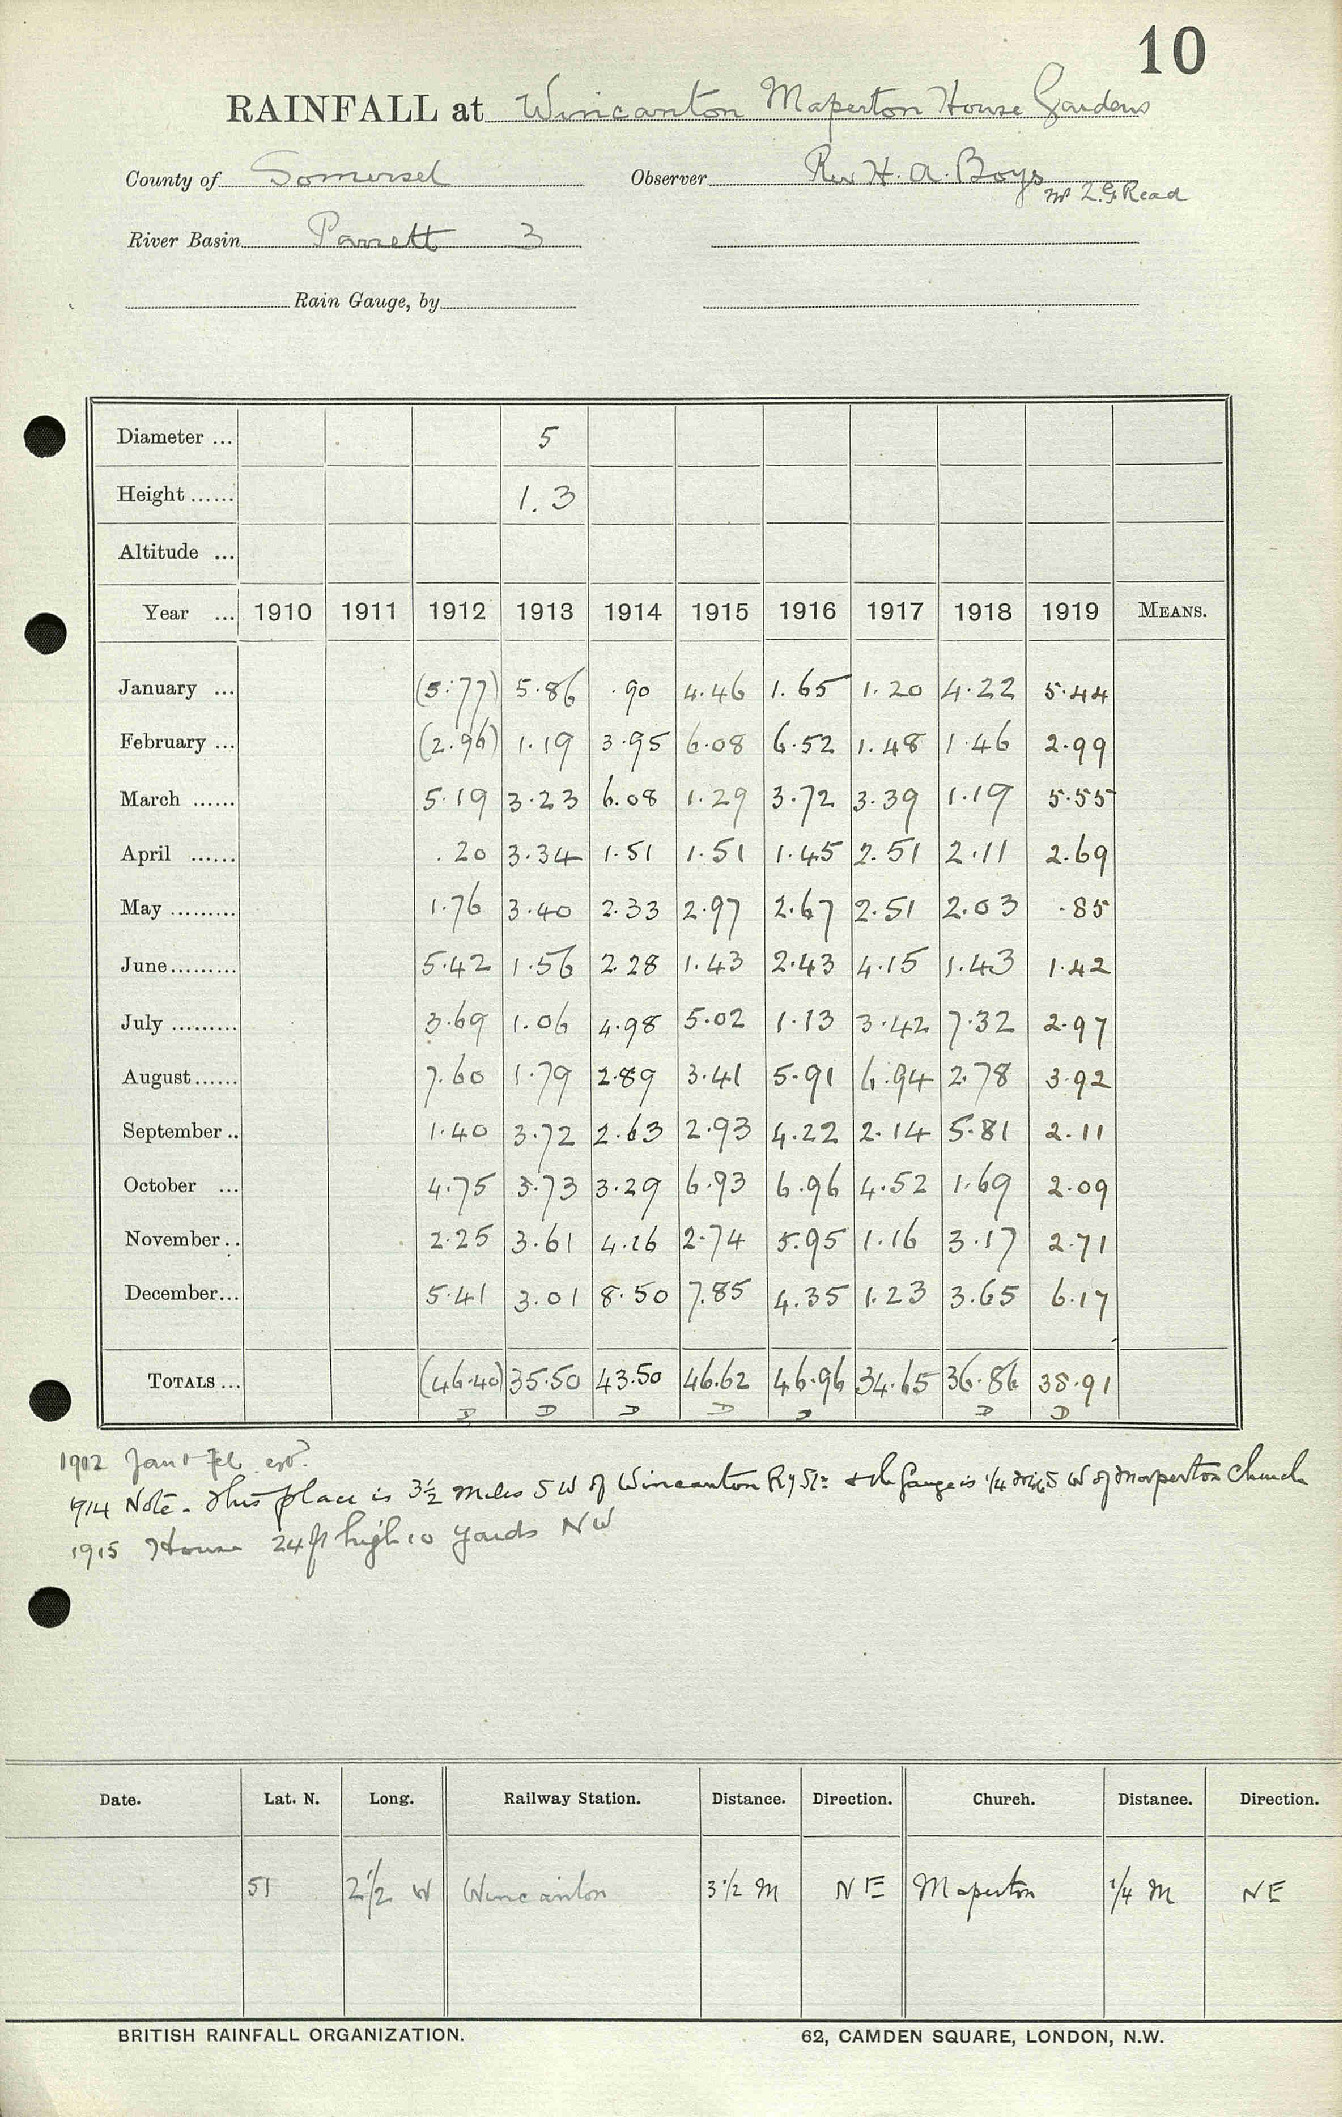 10
RAINFALL at Wincanton Maperton House Gardens
County of Somerset Observer Rev H. A. Boys
Mr L. G. Read
River Basin Parrett 3
Rain Gauge, by
Diameter ... 5
Height ...... 1.3
Altitude ...
Year ... 1910 1911 1912 1913 1914 1915 1916 1917 1918 1919 MEANS.
January ... (5.77) 5.86 .90 4.46 1.65 1.20 4.22 5.44
February ... (2.96) 1.19 3.95 6.08 6.52 1.48 1.46 2.99
March ...... 5.19 3.23 6.08 1.29 3.72 3.39 1.19 5.55
April ...... .20 3.34 1.51 1.51 1.45 2.51 2.11 2.69
May ......... 1.76 3.40 2.33 2.97 2.67 2.51 2.03 .85
June ......... 5.42 1.56 2.28 1.43 2.43 4.15 1.43 1.42
July ......... 3.69 1.06 4.98 5.02 1.13 3.42 7.32 2.97
August ...... 7.60 1.79 2.89 3.41 5.91 6.94 2.78 3.92
September .. 1.40 3.72 2.63 2.93 4.22 2.14 5.81 2.11
October ... 4.75 3.73 3.29 6.93 6.96 4.52 1.69 2.09
November .. 2.25 3.61 4.16 2.74 5.95 1.16 3.17 2.71
December ... 5.41 3.01 8.50 7.85 4.35 1.23 3.65 6.17
TOTALS ... (46.40) 35.50 43.50 46.62 46.96 34.65 36.86 38.91
D D D D D D D
1912 Jan & Feb est.
1914 Note. This place is 3½ miles SW of Wincanton Ry Stn & the gauge is ¼ mile SW of Maperton Church
1915 House 24 ft high 10 yards NW
Date. Lat. N. Long. Railway Station. Distance. Direction. Church. Distance. Direction.
51 2½ W Wincanton 3½ M NE Maperton ¼ M NE
BRITISH RAINFALL ORGANIZATION. 62, CAMDEN SQUARE, LONDON, N.W.